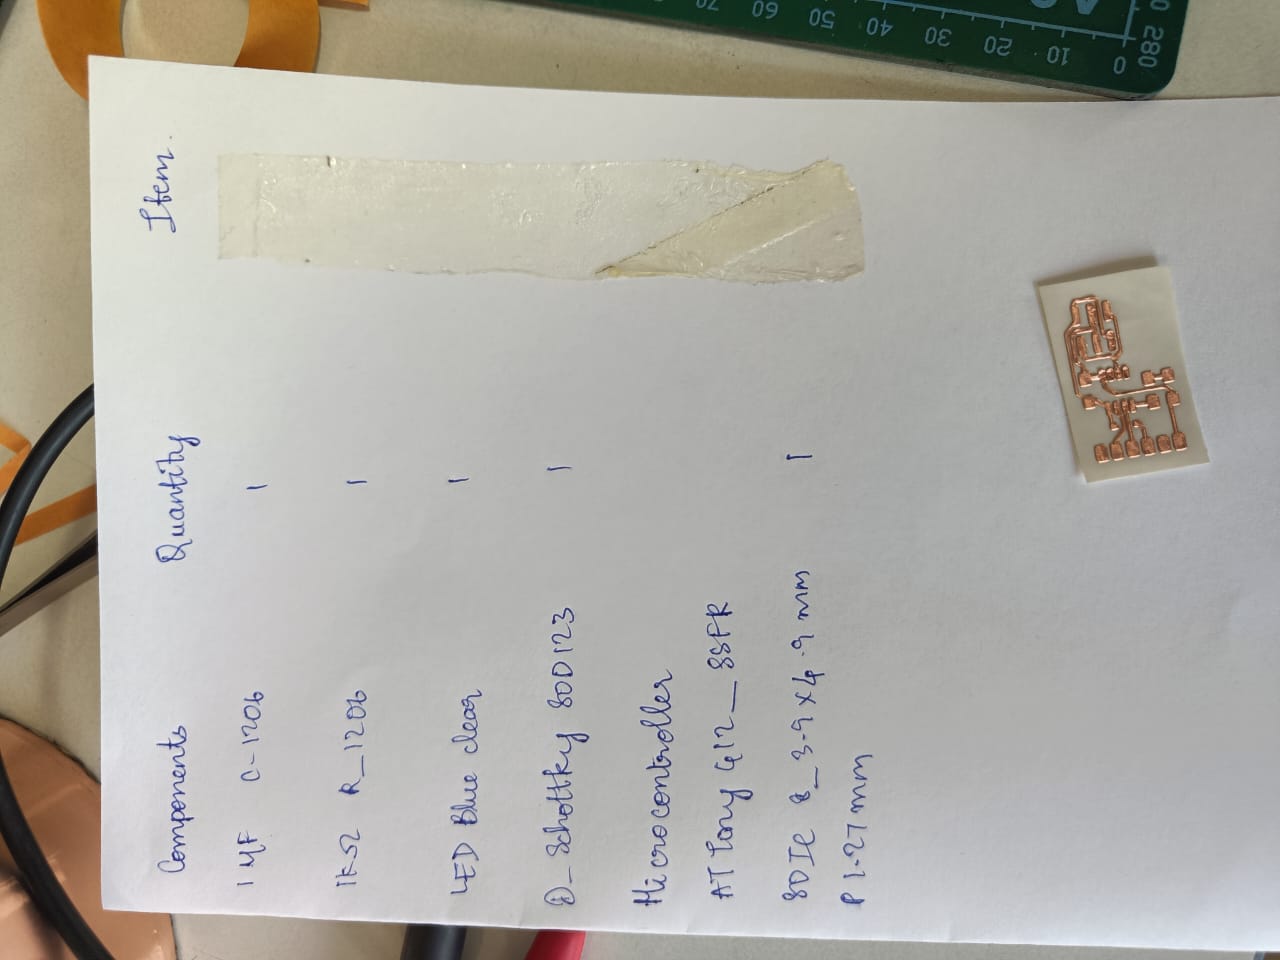 Components Quantity Item.
1 µF C-1206 1
1kΩ R_1206 1
LED Blue clear 1
D_Schottky SOD123 1
Microcontroller
ATTiny 412_SSFR
SOIC 8_3.9x4.9 mm 1
P 1.27 mm
0 10 20 30 40 50 60 70
280